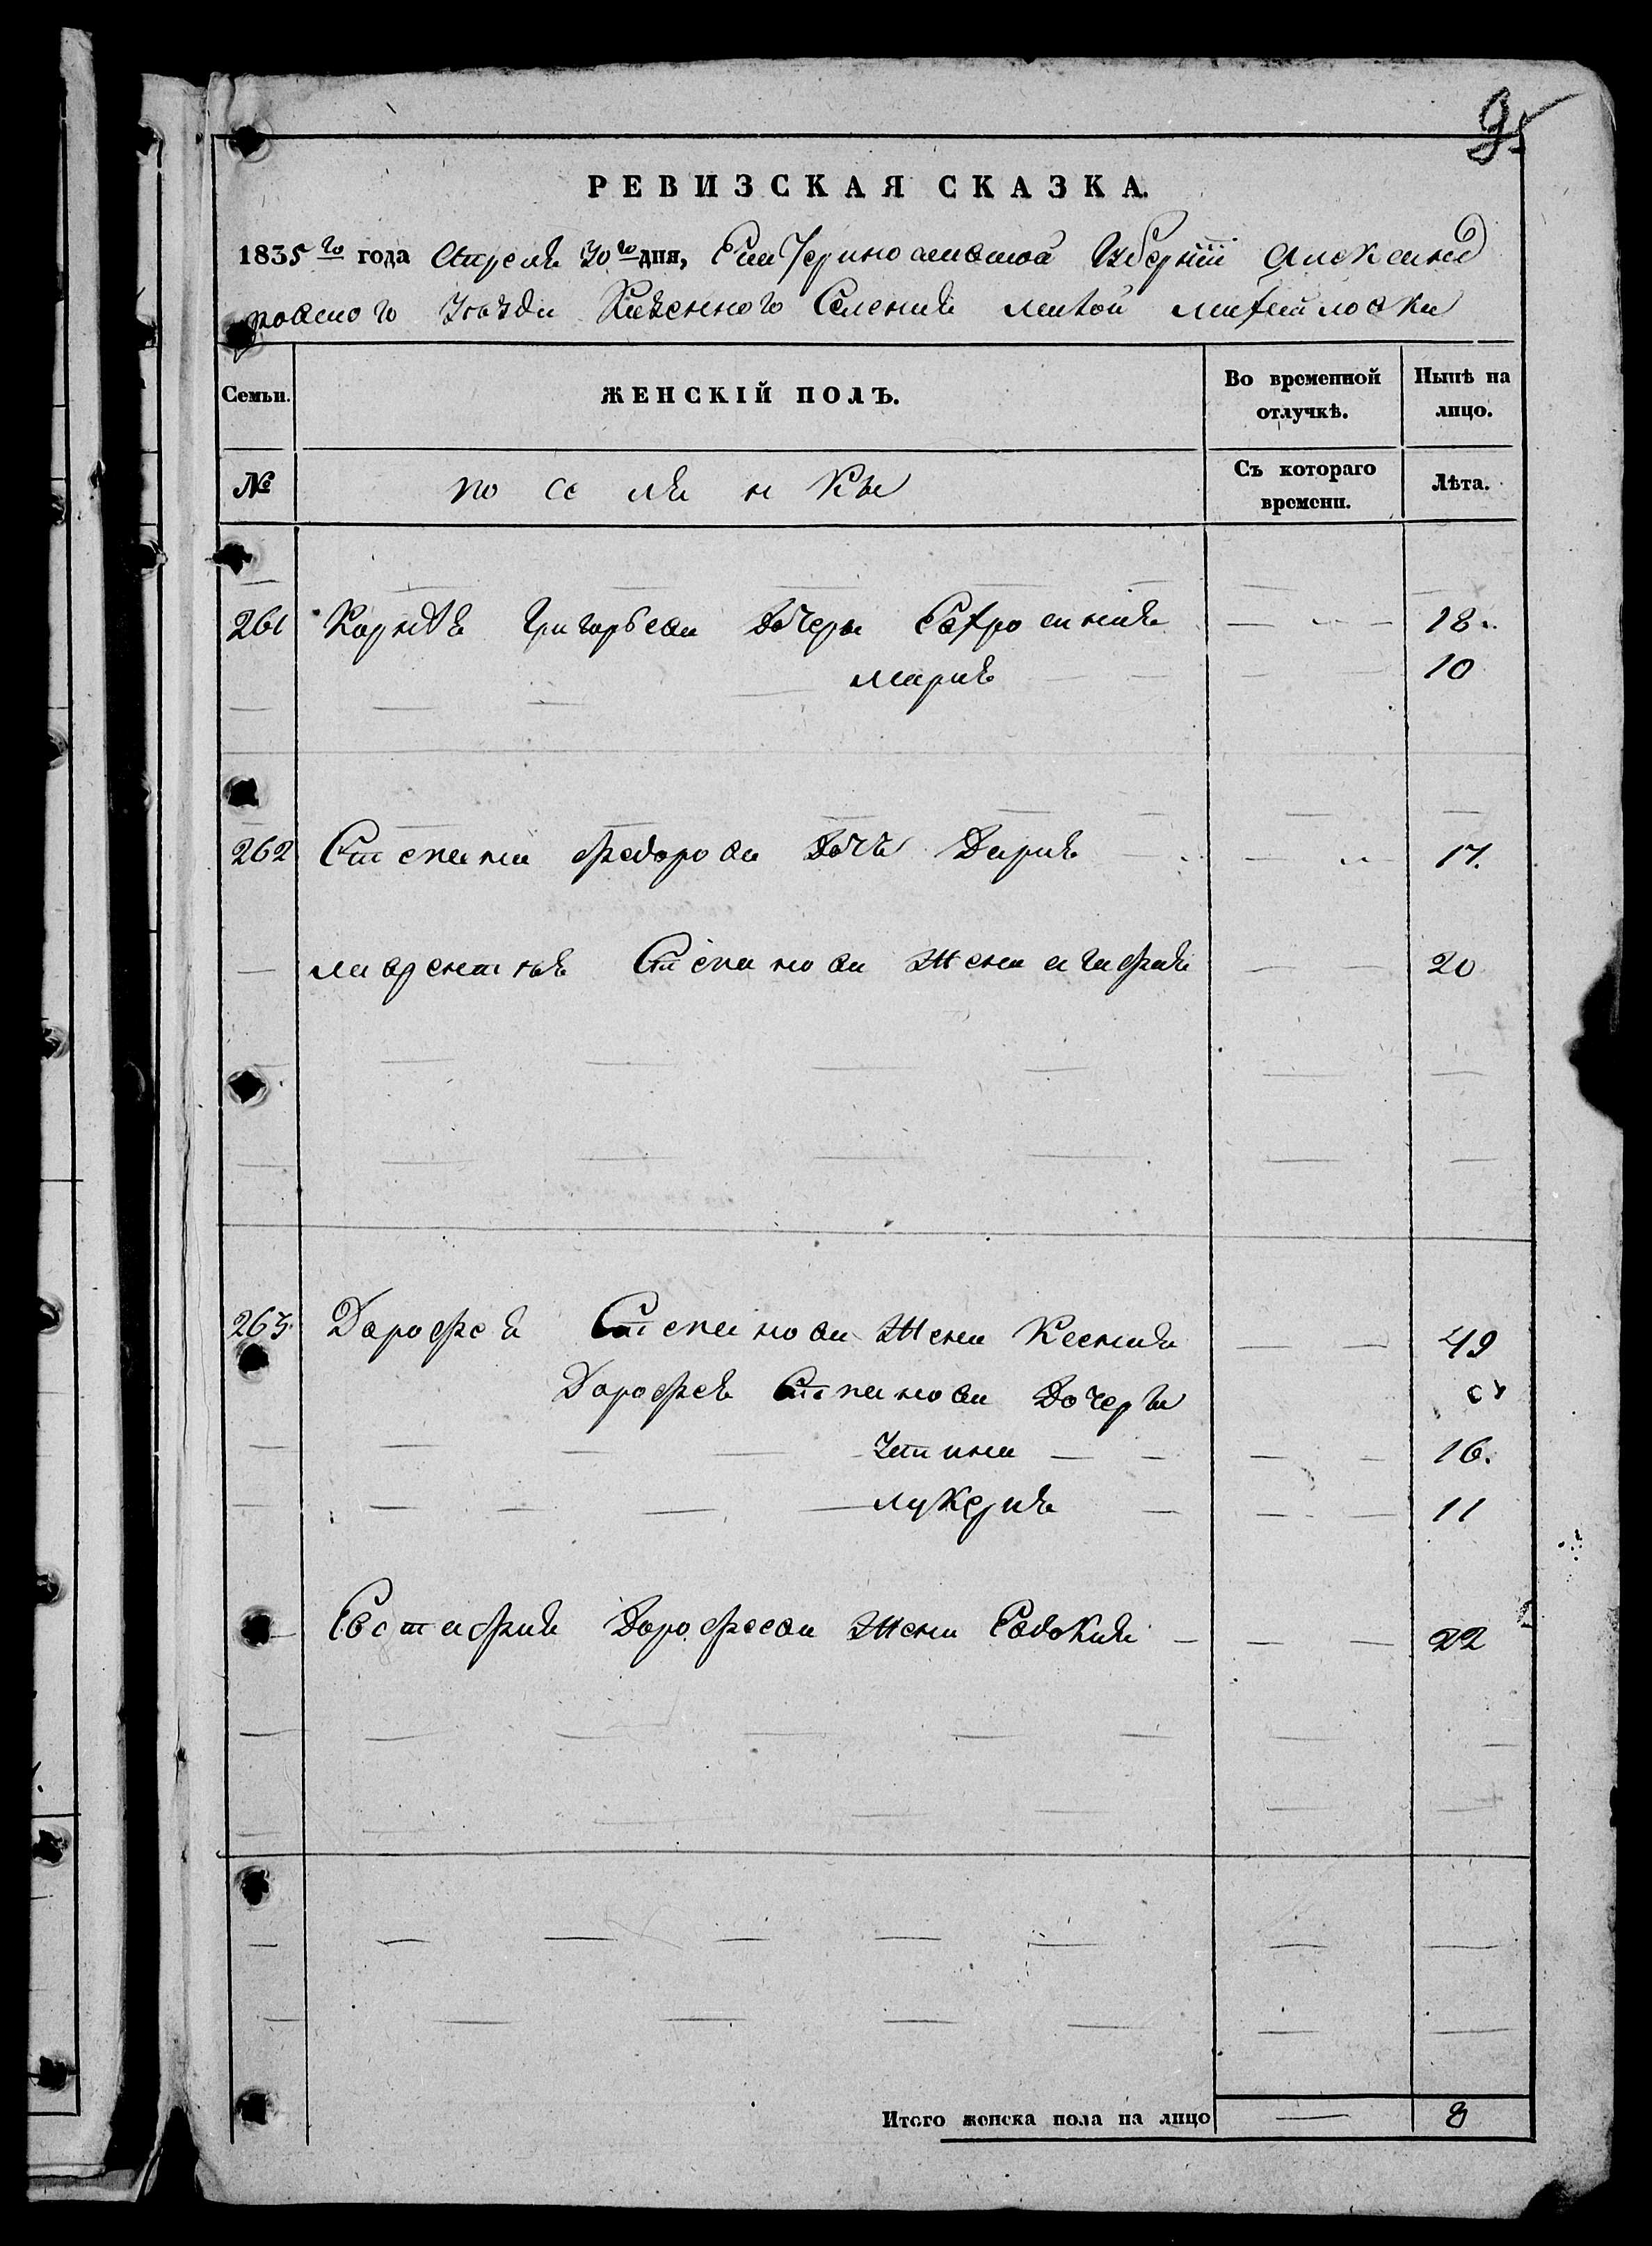 РЕВИЗСКАЯ СКАЗКА.
1835 го года Апреля 30 го дня, Екатеринославской Губернiи Александ
ровского Уезда Казенного Селения малой михайловки
Семьи.
ЖЕНСКІЙ ПОЛЪ.
Во временной отлучкѣ.
Нынѣ на лицо.
№
по се ля н Кы
Съ котораго времени.
Лѣта.
261 Корнея Григорьева дочеры Евфросиния 18
мария 10
262 Степана Федорова дочь Дария 17.
лаврентия Степанова Жена агафия 20
263 Дорофея Степанова Жена Ксения 49
Дорофея Степанова Дочеры
Устина 16.
лукерия 11
Евстафия Дорофеева Жена Евдокия 22
Итого женска пола на лицо — 8